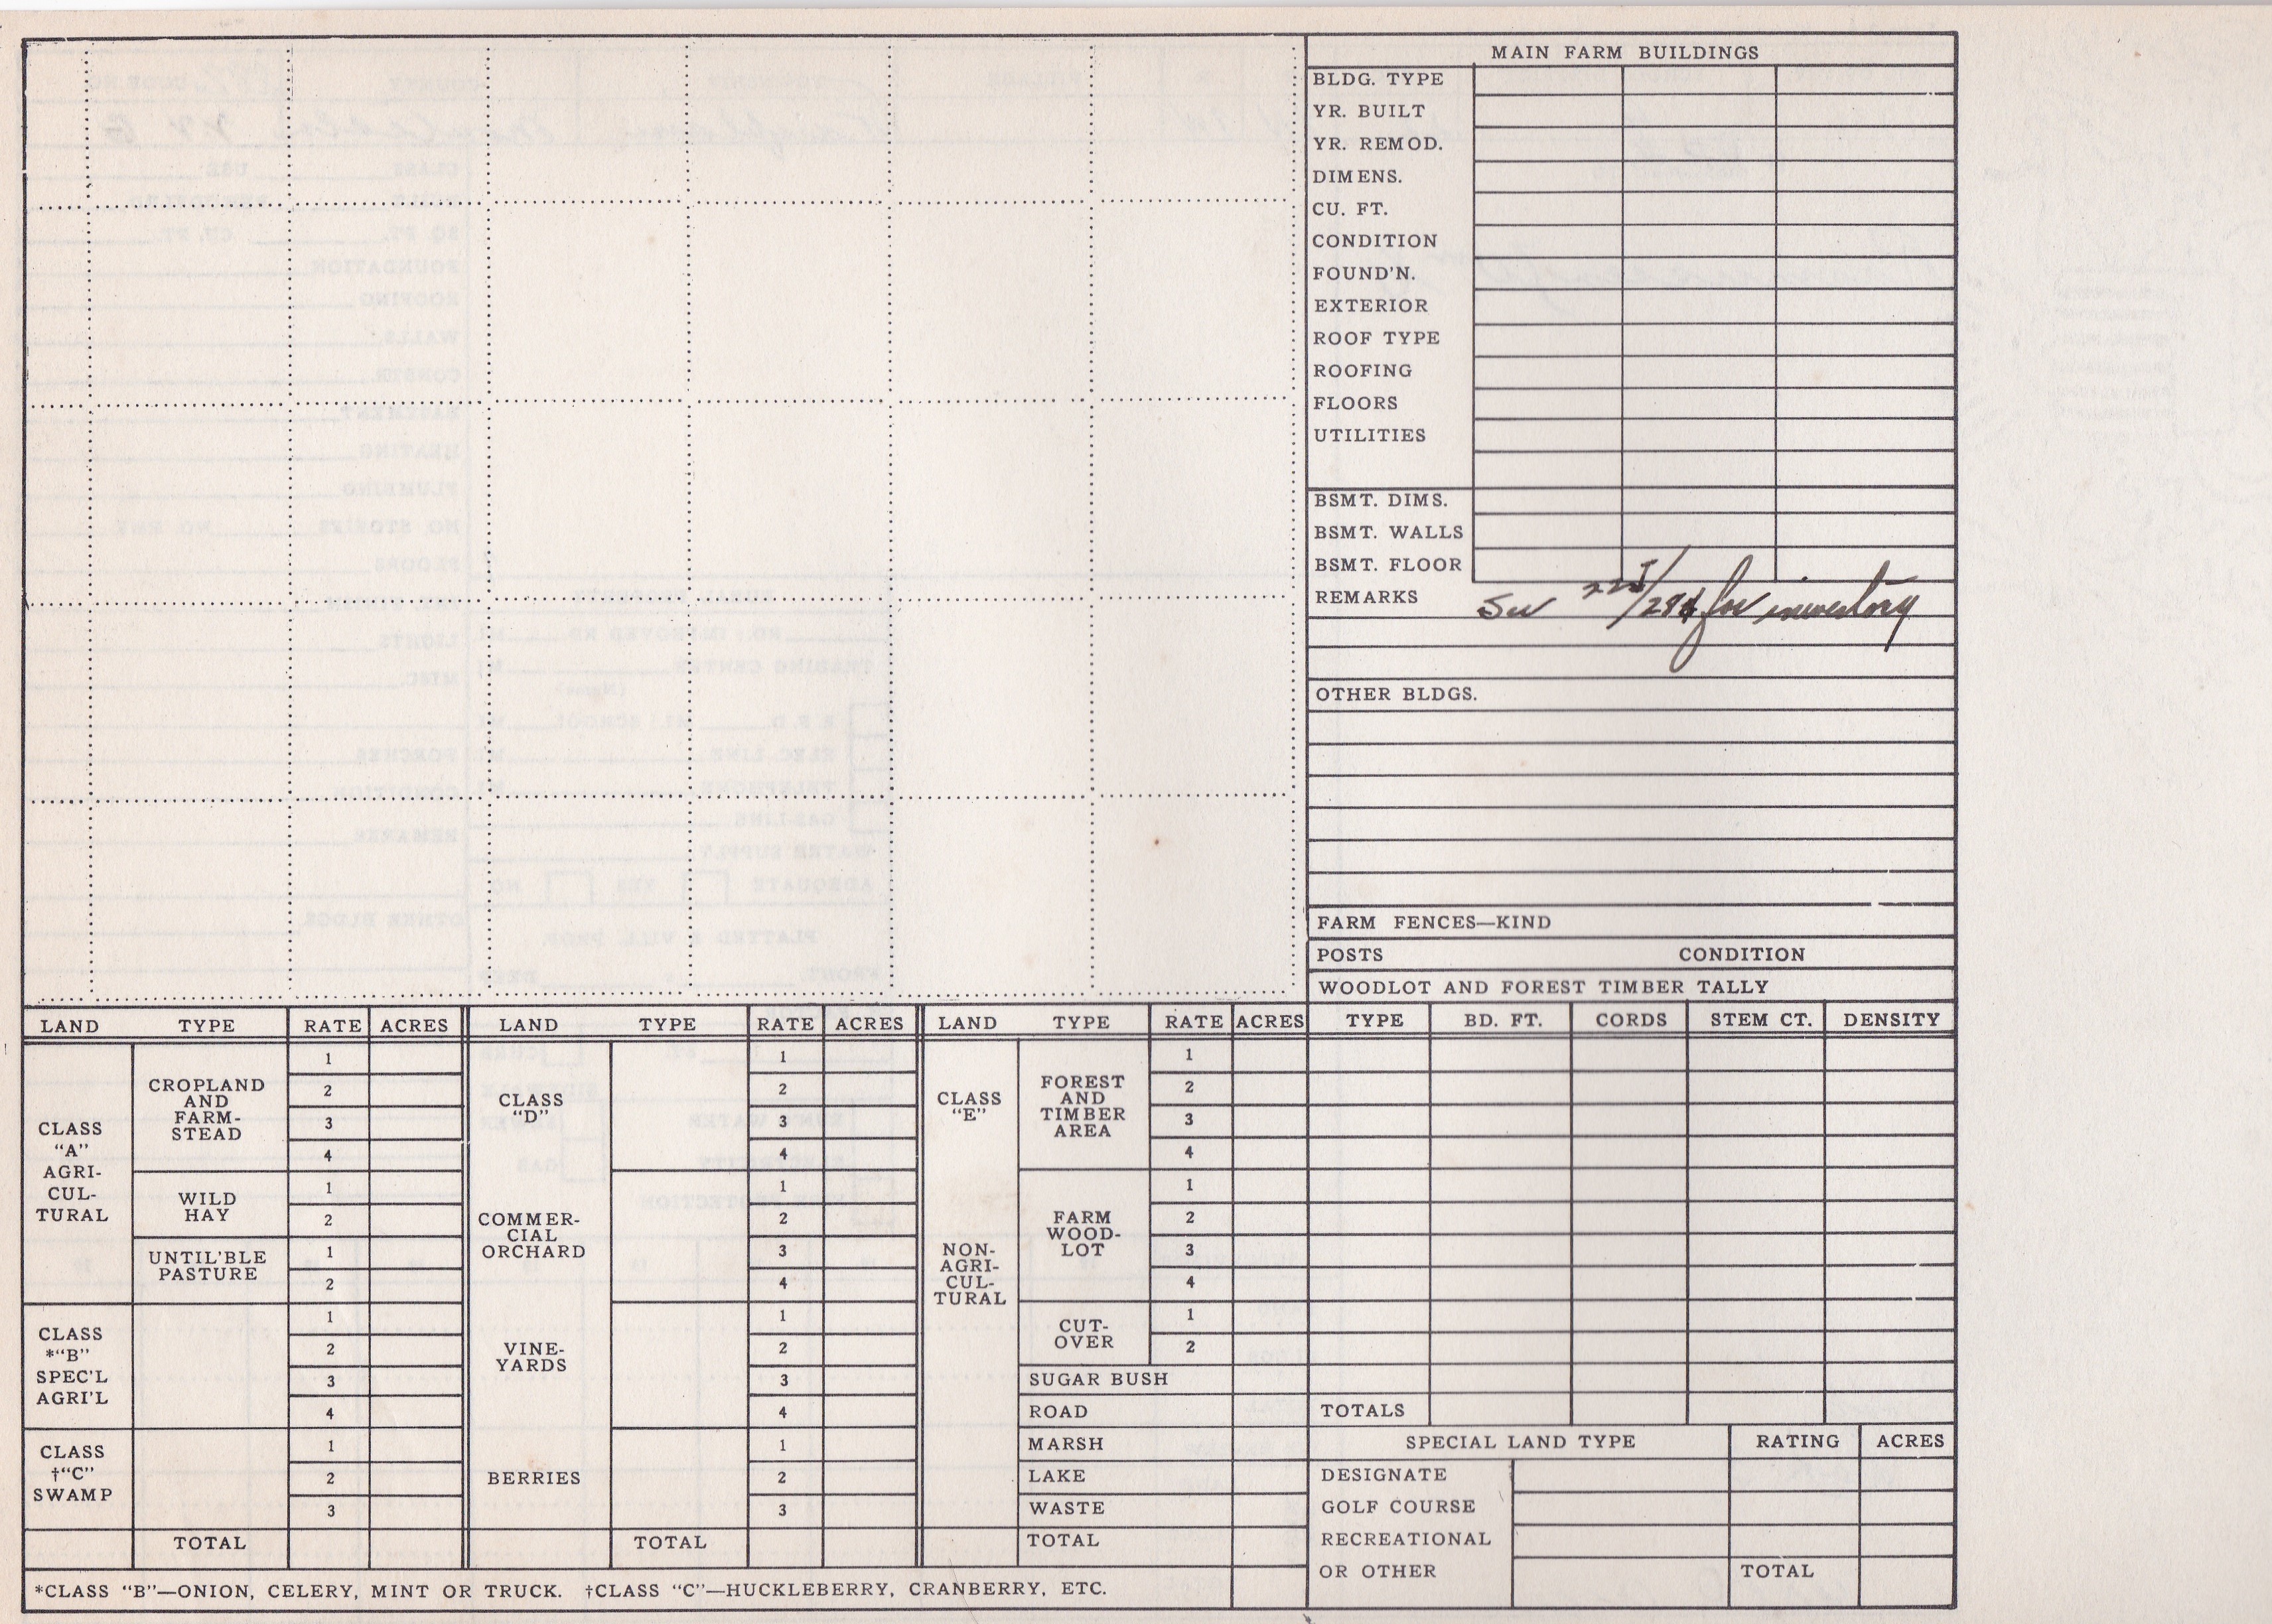 MAIN FARM BUILDINGS
BLDG. TYPE
YR. BUILT
YR. REMOD.
DIMENS.
CU. FT.
CONDITION
FOUND'N.
EXTERIOR
ROOF TYPE
ROOFING
FLOORS
UTILITIES
BSMT. DIMS.
BSMT. WALLS
BSMT. FLOOR
REMARKS for inventory
OTHER BLDGS.
FARM FENCES—KIND
POSTS CONDITION
WOODLOT AND FOREST TIMBER TALLY
TYPE BD. FT. CORDS STEM CT. DENSITY
TOTALS
SPECIAL LAND TYPE RATING ACRES
DESIGNATE
GOLF COURSE
RECREATIONAL
OR OTHER TOTAL
LAND TYPE RATE ACRES
CLASS
"A"
AGRI-
CUL-
TURAL
CROPLAND
AND
FARM-
STEAD
1
2
3
4
WILD
HAY
1
2
UNTIL'BLE
PASTURE
1
2
CLASS
*"B"
SPEC'L
AGRI'L
1
2
3
4
CLASS
†"C"
SWAMP
1
2
3
TOTAL
LAND TYPE RATE ACRES
CLASS
"D"
1
2
3
4
COMMER-
CIAL
ORCHARD
1
2
3
4
VINE-
YARDS
1
2
3
4
BERRIES
1
2
3
TOTAL
LAND TYPE RATE ACRES
CLASS
"E"
NON-
AGRI-
CUL-
TURAL
FOREST
AND
TIMBER
AREA
1
2
3
4
FARM
WOOD-
LOT
1
2
3
4
CUT-
OVER
1
2
SUGAR BUSH
ROAD
MARSH
LAKE
WASTE
TOTAL
*CLASS "B"—ONION, CELERY, MINT OR TRUCK. †CLASS "C"—HUCKLEBERRY, CRANBERRY, ETC.